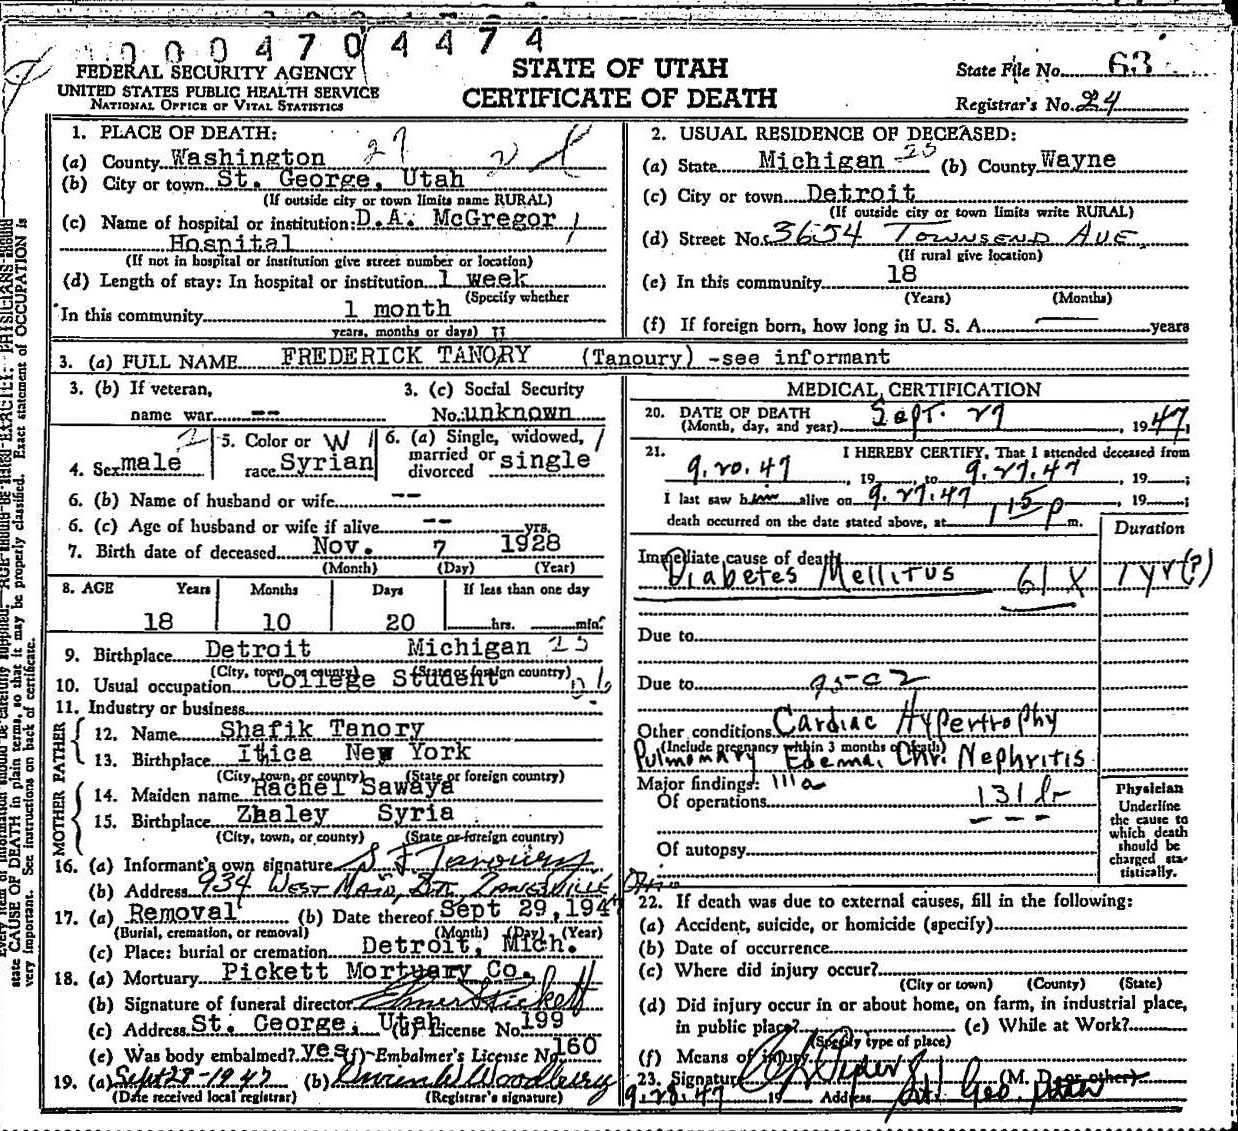 0004704474
FEDERAL SECURITY AGENCY
UNITED STATES PUBLIC HEALTH SERVICE
NATIONAL OFFICE OF VITAL STATISTICS
STATE OF UTAH
CERTIFICATE OF DEATH
State File No. 63
Registrar's No. 24
1. PLACE OF DEATH:
(a) County Washington 27
(b) City or town St. George, Utah
(If outside city or town limits name RURAL)
(c) Name of hospital or institution: D.A. McGregor
Hospital
(If not in hospital or institution give street number or location)
(d) Length of stay: In hospital or institution 1 week
(Specify whether
In this community 1 month
years, months or days)
2. USUAL RESIDENCE OF DECEASED:
(a) State Michigan 23 (b) County Wayne
(c) City or town Detroit
(If outside city or town limits write RURAL)
(d) Street No. 3654 TOWNSEND AVE.
(If rural give location)
(e) In this community 18
(Years) (Months)
(f) If foreign born, how long in U. S. A. years
3. (a) FULL NAME FREDERICK TANORY (Tanoury) -see informant
3. (b) If veteran,
name war --
3. (c) Social Security
No. unknown
4. Sex male 2
5. Color or W
race Syrian
6. (a) Single, widowed,
married or
divorced single
6. (b) Name of husband or wife --
6. (c) Age of husband or wife if alive -- yrs.
7. Birth date of deceased Nov. 7 1928
(Month) (Day) (Year)
8. AGE Years Months Days If less than one day
18 10 20 hrs. min.
9. Birthplace Detroit Michigan 23
(City, town, or county) (State or foreign country)
10. Usual occupation College Student
11. Industry or business
FATHER
12. Name Shafik Tanory
13. Birthplace Itica New York
(City, town, or county) (State or foreign country)
MOTHER
14. Maiden name Rachel Sawaya
15. Birthplace Zhaley Syria
(City, town, or county) (State or foreign country)
16. (a) Informant's own signature S F Tanoury
(b) Address 934 WEST MAIN, STR. ZANESVILLE OHIO
17. (a) Removal (b) Date thereof Sept 29, 1947
(Burial, cremation, or removal) (Month) (Day) (Year)
(c) Place: burial or cremation Detroit, Mich.
18. (a) Mortuary Pickett Mortuary Co.
(b) Signature of funeral director Elmer Pickett
(c) Address St. George, Utah (d) License No. 199
(e) Was body embalmed? yes (f) Embalmer's License No. 160
19. (a) Sept 28-1947 (b) Woodbury
(Date received local registrar) (Registrar's signature)
MEDICAL CERTIFICATION
20. DATE OF DEATH
(Month, day, and year) Sept. 27, 1947
21. I HEREBY CERTIFY, That I attended deceased from
9.20.47, 19 , to 9.27.47, 19 ;
I last saw him alive on 9.27.47, 19 ;
death occurred on the date stated above, at 115 p m.
Duration
Immediate cause of death
Diabetes Mellitus 61 X 1 yr (?)
Due to
Due to 95-c2
Other conditions Cardiac Hypertrophy
(Include pregnancy within 3 months of death)
Pulmonary Edema, Chr. Nephritis
Major findings: 111a
Of operations 131
Of autopsy
Physician
Underline
the cause to
which death
should be
charged sta-
tistically.
22. If death was due to external causes, fill in the following:
(a) Accident, suicide, or homicide (specify)
(b) Date of occurrence
(c) Where did injury occur?
(City or town) (County) (State)
(d) Did injury occur in or about home, on farm, in industrial place,
in public place? (e) While at Work?
(Specify type of place)
(f) Means of injury
23. Signature (M. D. or other)
9.28.47 19 Address St. Geo. Utah
Every item of information should be carefully supplied. AGE should be stated EXACTLY. PHYSICIANS should
state CAUSE OF DEATH in plain terms, so that it may be properly classified. Exact statement of OCCUPATION is
very important. See instructions on back of certificate.